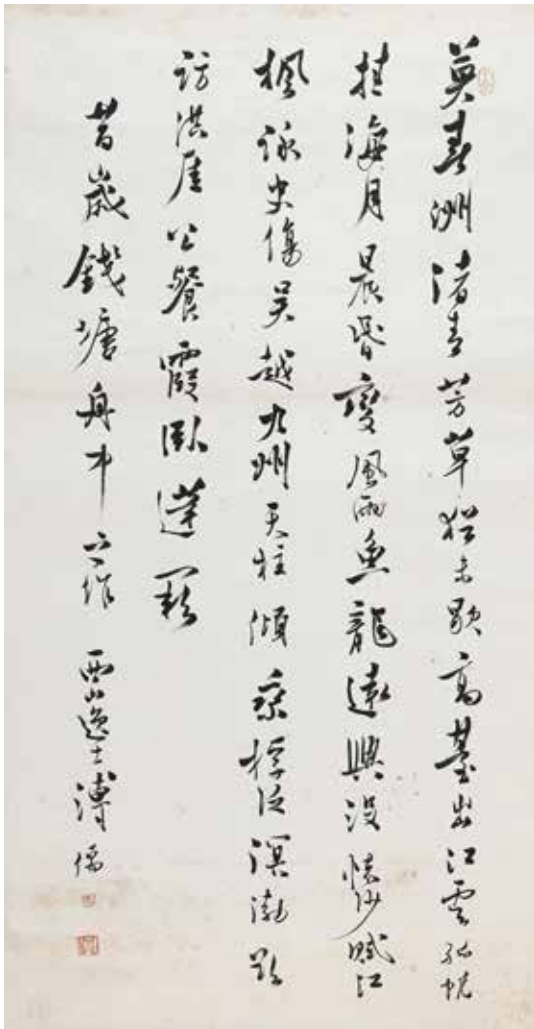 莫春洲渚青芳草猶未歇高臺出江雲孤帆
挂海月晨昏變風雨魚龍遠興沒懷沙賦江
楓詠史傷吳越九州天柱傾乘桴泛溟渤欲
訪洪厓公餐霞臥蓬闕
昔歲錢塘舟中之作 西山逸士溥儒